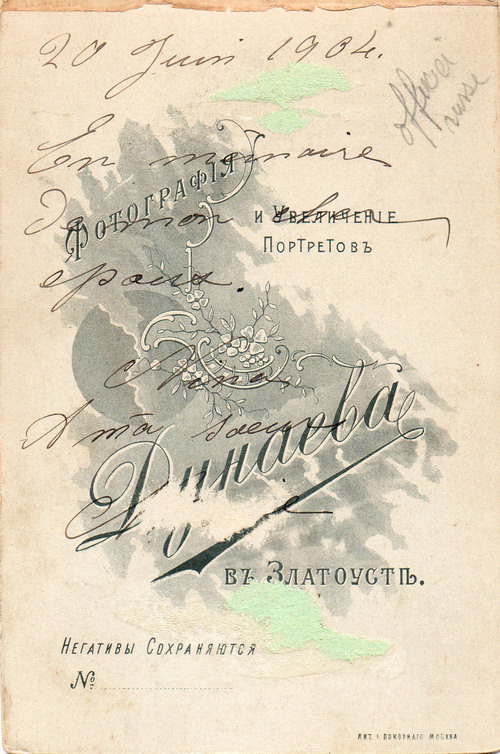 20 Juin 1904.
officier
russe
En memoire
Фотографія
de mon cher
и Увеличеніе
Портретовъ
epoux.
Nina
A ma soeur
Дунаева
въ Златоустѣ.
Негативы Сохраняются
№
Лит. І Покорнаго Москва